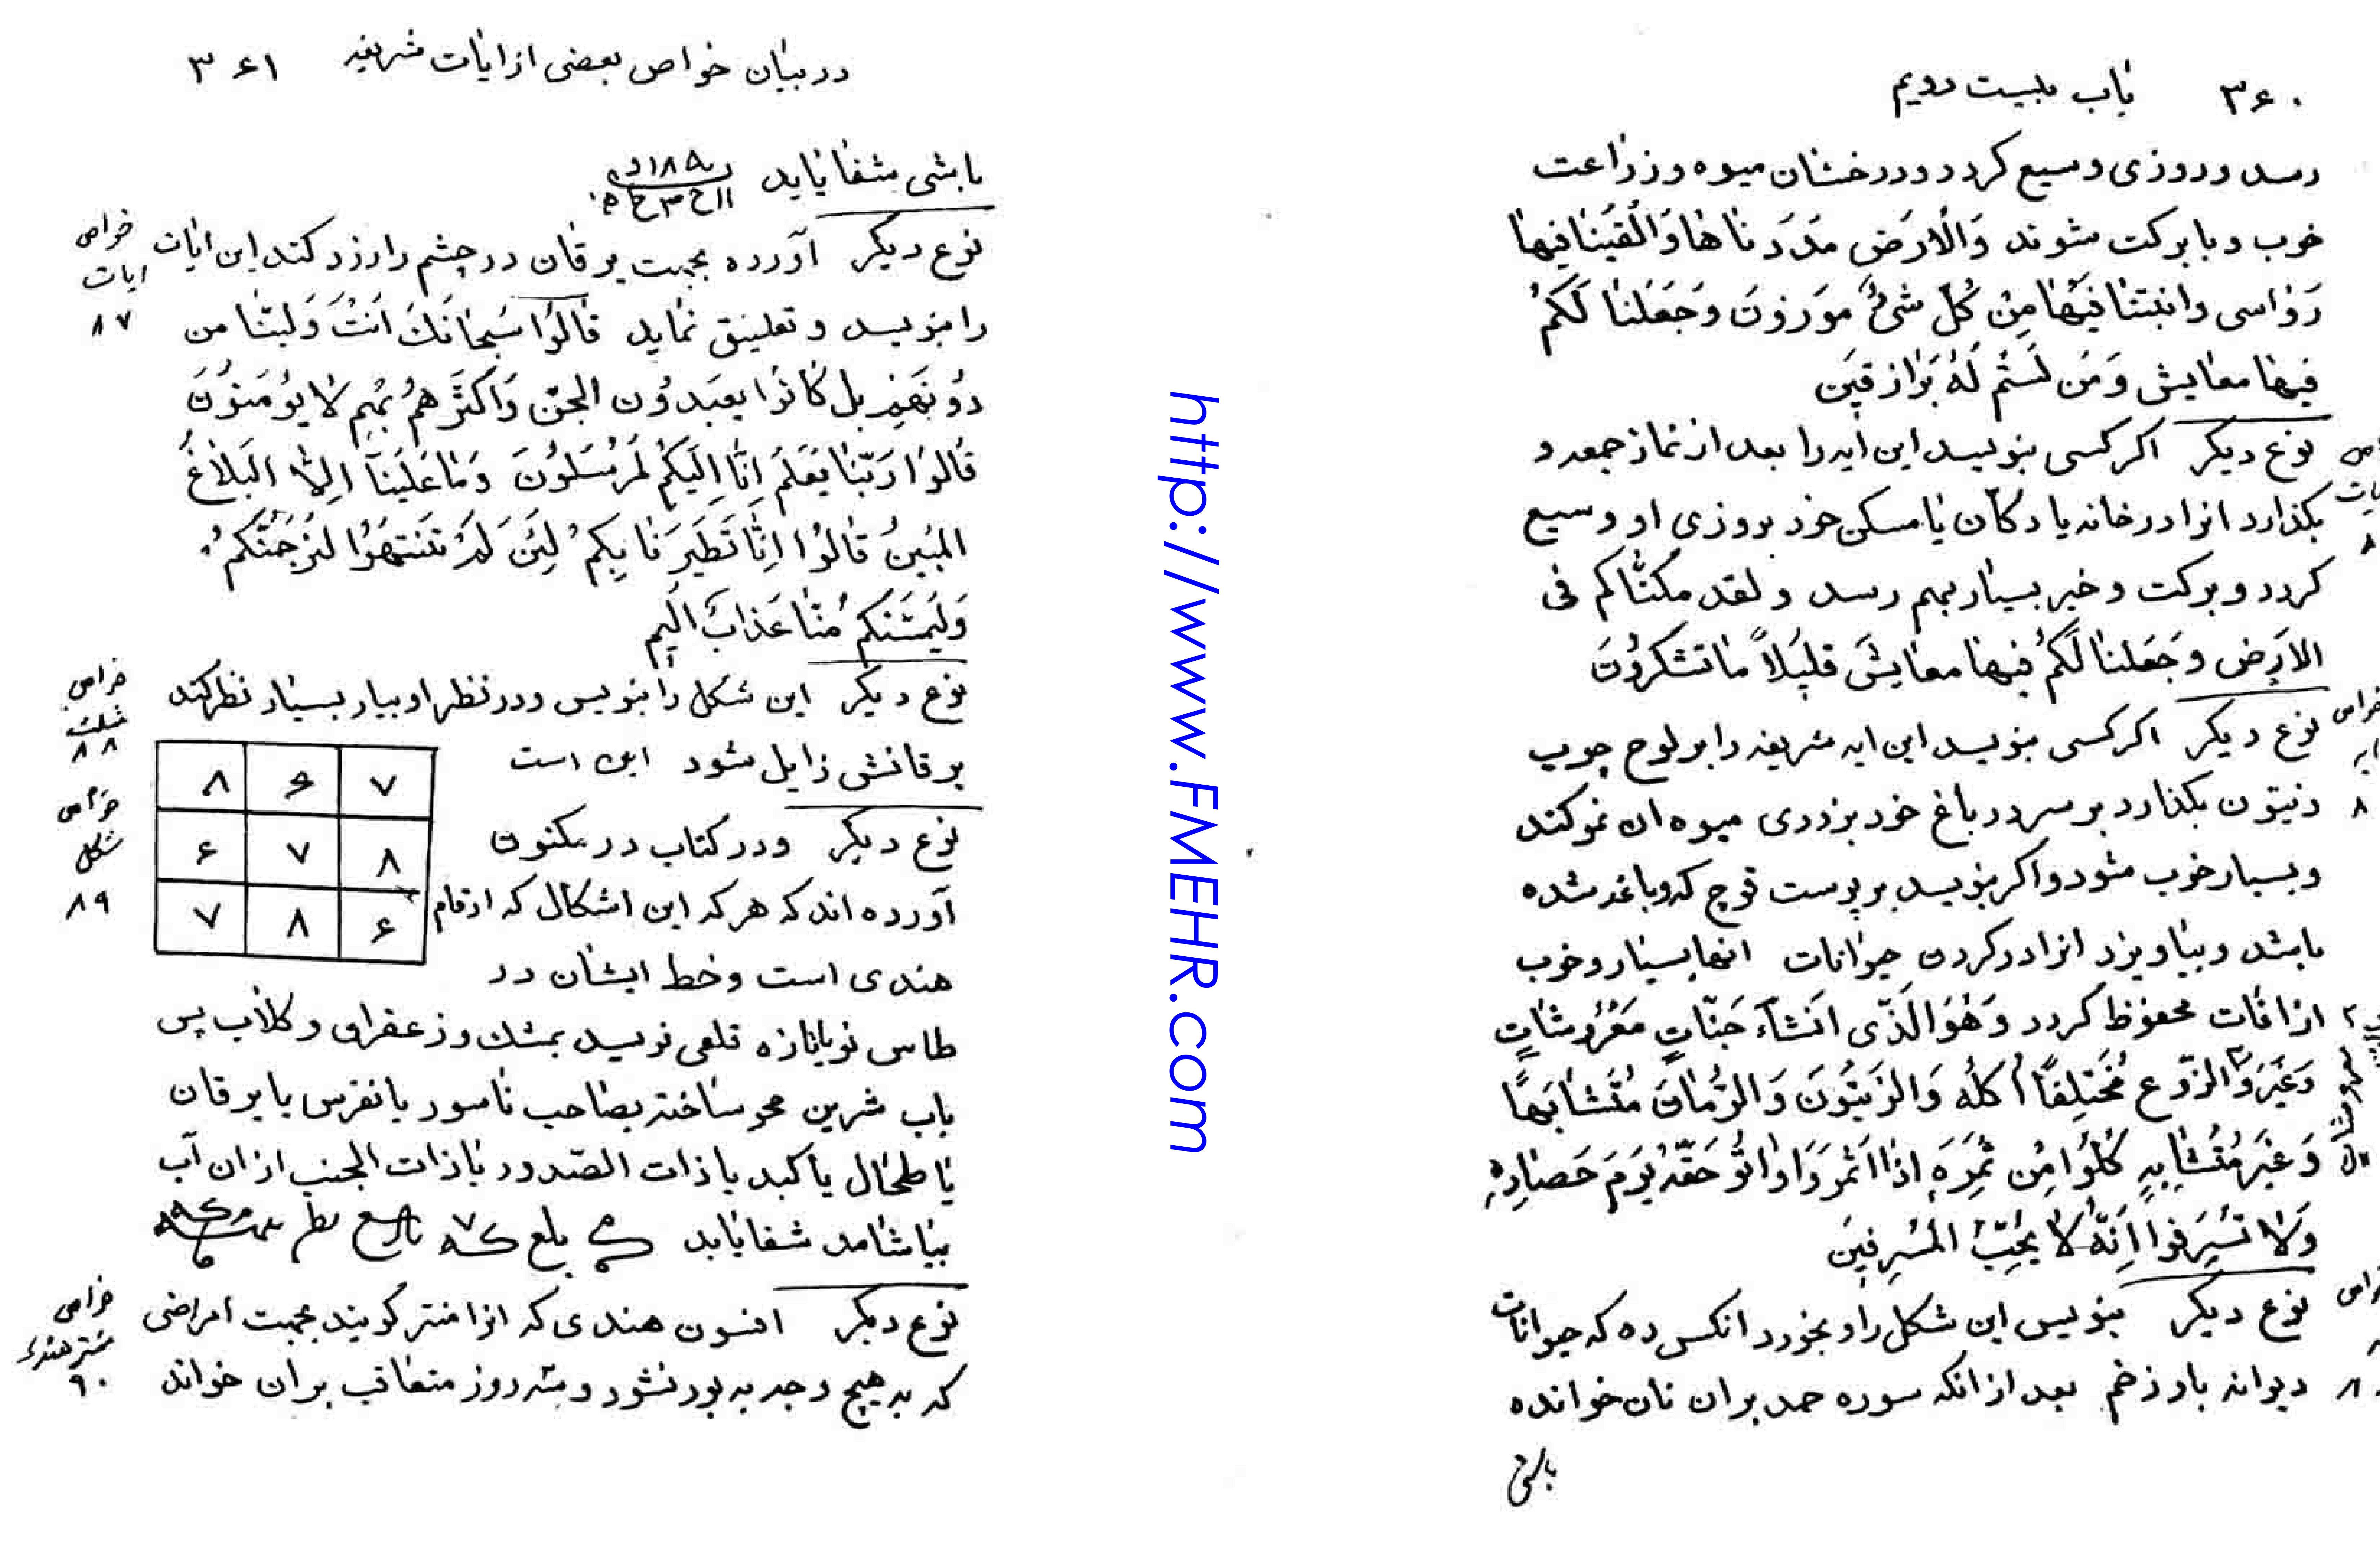 ۳۶۰ باب بیست دویم
رسد و روزی وسیع کردد و درختان میوه و زراعت
خوب و با برکت شوند وَالْاَرَضَ مَدَدنَاهَا وَاَلْقَیْنَا فیهَا
رَوَاسی وانبتنا فیهَا مِنْ کُلِّ شیْءٍ مَوزونَ وَجَعَلنَا لَکُمْ
فیهَا معایش وَمَن لَستُم لَهُ بَرازقینَ
نوع دیکر اکر کسی بنویسد این ایه را بعد از نماز جمعه و
بکذارد انرا در خانه یا دکان یا مسکن خود روزی او وسیع
کردد و برکت و خیر بسیار بهم رسد ولقد مکناکم فی
الارَض وجَعَلنا لَکُمْ فیها معایشَ قلیلاً ما تشکرُونَ
نوع دیکر اکر کسی بنویسد این ایه شریفه را بر لوح چوب
زیتون بکذارد بر سر در باغ خود بزودی میوه ان نمو کند
و بسیار خوب شود و اکر بنویسد بر پوست قوچ که دباغه شده
باشد و بیاویزد انرا در کردن حیوانات انها بسیار و خوب
از افات محفوظ کردد وَهُوَ الَّذی اَنْشَاَ جَنّاتٍ مَعْرُوشاتٍ
وَغَیَرَ وَالزَّرع مُخْتَلِفًا اُکُلُه وَالزَیتُونَ وَالرُّمانَ مُتَشابهًا
وَغَیَرَ مُتَشابِهٍ کُلُوا مِن ثَمَرِهِ اِذا اَثمَرَ وَاٰتُوا حَقَّهُ یَوَمَ حَصادِهِ
وَلا تُسْرِفُوا اِنَّهُ لا یُحِبُّ المُسْرِفینَ
نوع دیکر بنویس این شکل را و بخورد انکس ده که حیوانات
دیوانه باو زخم بعد از انکه سوره حمد بران نان خوانده
باشی
در بیان خواص بعضی از ایات شریفه ۳۶۱
باشی شفا یابد
نوع دیکر آورده بجهت یرقان در چشم را زرد کند این ایات
خواص
ایات
۸۷
را بنویسد و تعلیق نماید قالُوا سُبحانَکَ اَنتَ وَلیّنا من
دُونِهِم بل کانُوا یعبَدُون الجنّ وَاَکثَرهمْ بِهِم لا یؤمِنوُنَ
قالوُا رَبّنا یَعَلَم اِنّا اِلَیکُم لَمُرْسَلوُنَ وَمَا عَلَیَنا اِلاّ البَلاغُ
المُبینُ قالوُا اِنّا تَطَیَّرنا بِکُمْ لئِن لَم تنتَهوُا لَنَرجُمَنّکُمْ
وَلَیَمَسَنّکُمْ مِنّا عَذابٌ اَلیم
نوع دیکر این شکل را بنویس و در نظر او بیار بسیار نظر کند
خواص
مثلث
۸۸
یرقانش زایل شود این است
۷ ۶ ۸
۸ ۷ ۶
۶ ۸ ۷
خواص
شکل
۸۹
نوع دیکر و در کتاب در مکنون
آورده اند که هر که این اشکال که ارقام
هندی است و خط ایشان در
طاس نو یا تازه قلعی نویسد بمشک و زعفران و کلاب پس
باب شرین محو ساخته بصاحب ناسور یا نقرس یا یرقان
یا طحال یا کبد یا ذات الصدور یا ذات الجنب از ان آب
بیاشامد شفا یابد
نوع دیکر افسون هندی که انرا منتر کویند بجهت امراضی
خواص
منتر هندی
۹۰
که به هیچ وجه به بود نشود و سه روز متعاقب بران خواند
http://www.FMEHR.com